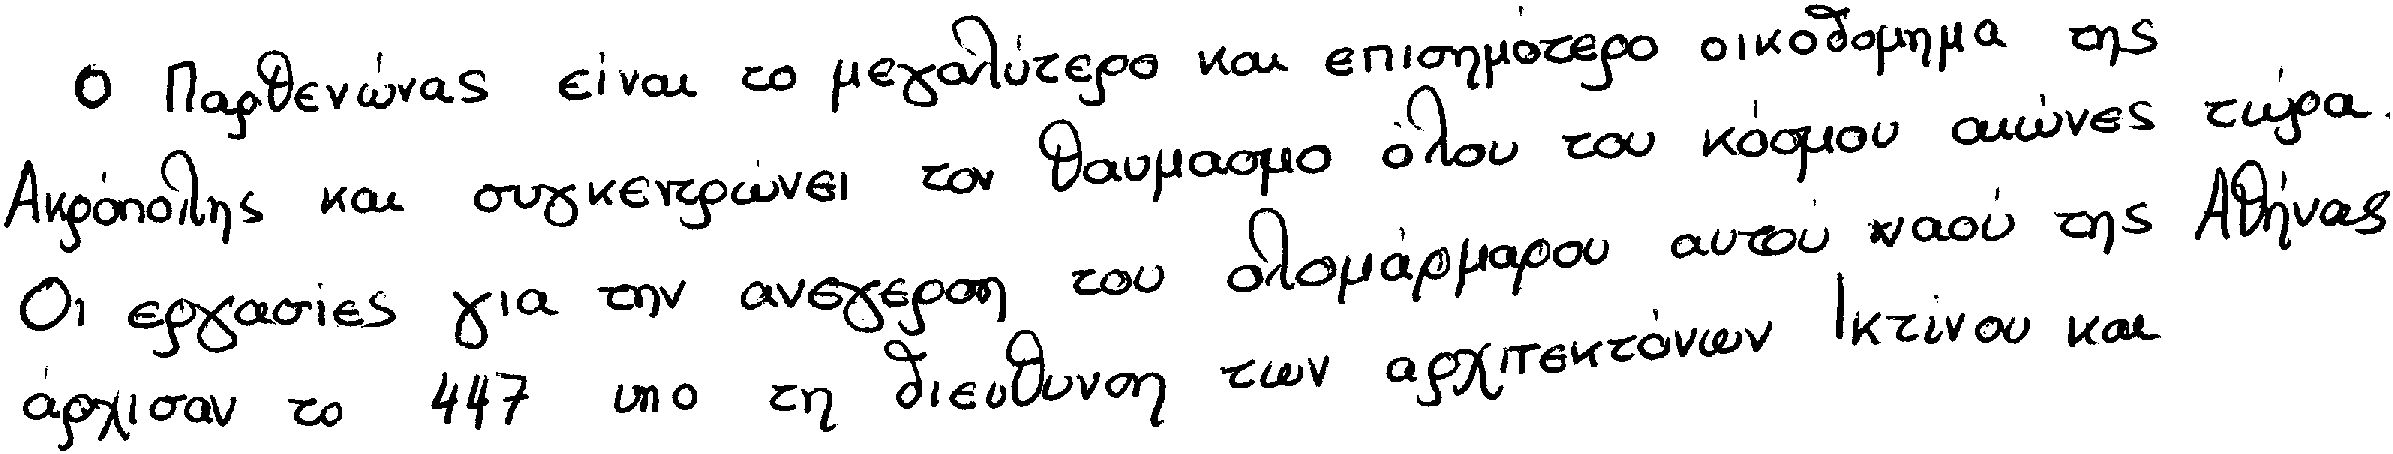 Ο Παρθενώνας είναι το μεγαλύτερο και επισημότερο οικοδομημα της
Ακρόπολης και συγκεντρώνει τον θαυμασμο όλου του κόσμου αιώνες τώρα.
Οι εργασίες για την ανεγερση του ολομάρμαρου αυτού ναού της Αθήνας
άρχισαν το 447 υπο τη διευθυνση των αρχιτεκτόνων Ικτίνου και